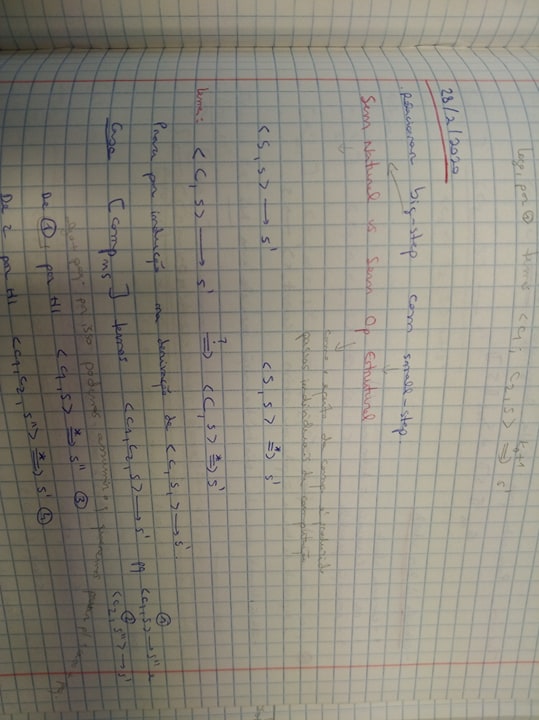 Logo, por ① temos <C1; C2, s> ⇒ s'
28/2/2020
Relacionar big-step com small-step.
Sem Natural vs Sem Op Estrutural
como o efeito da comp é produzido
passos individuais da computação
<S, s> → s' <S, s> ⇒* s'
Lema: <C, s> → s' ?⇒ <C, s> ⇒* s'
Prova por indução na derivação de <C, s,> → s'.
Caso [comp ns] temos <C1, C2, s> → s' pq ① <C1, s> → s'' e
② <C2, s''> → s'
por isso podemos assumir
De ①, por HI <C1, s> ⇒* s'' ③
De 2 por HI <C1, C2, s''> ⇒* s' ④